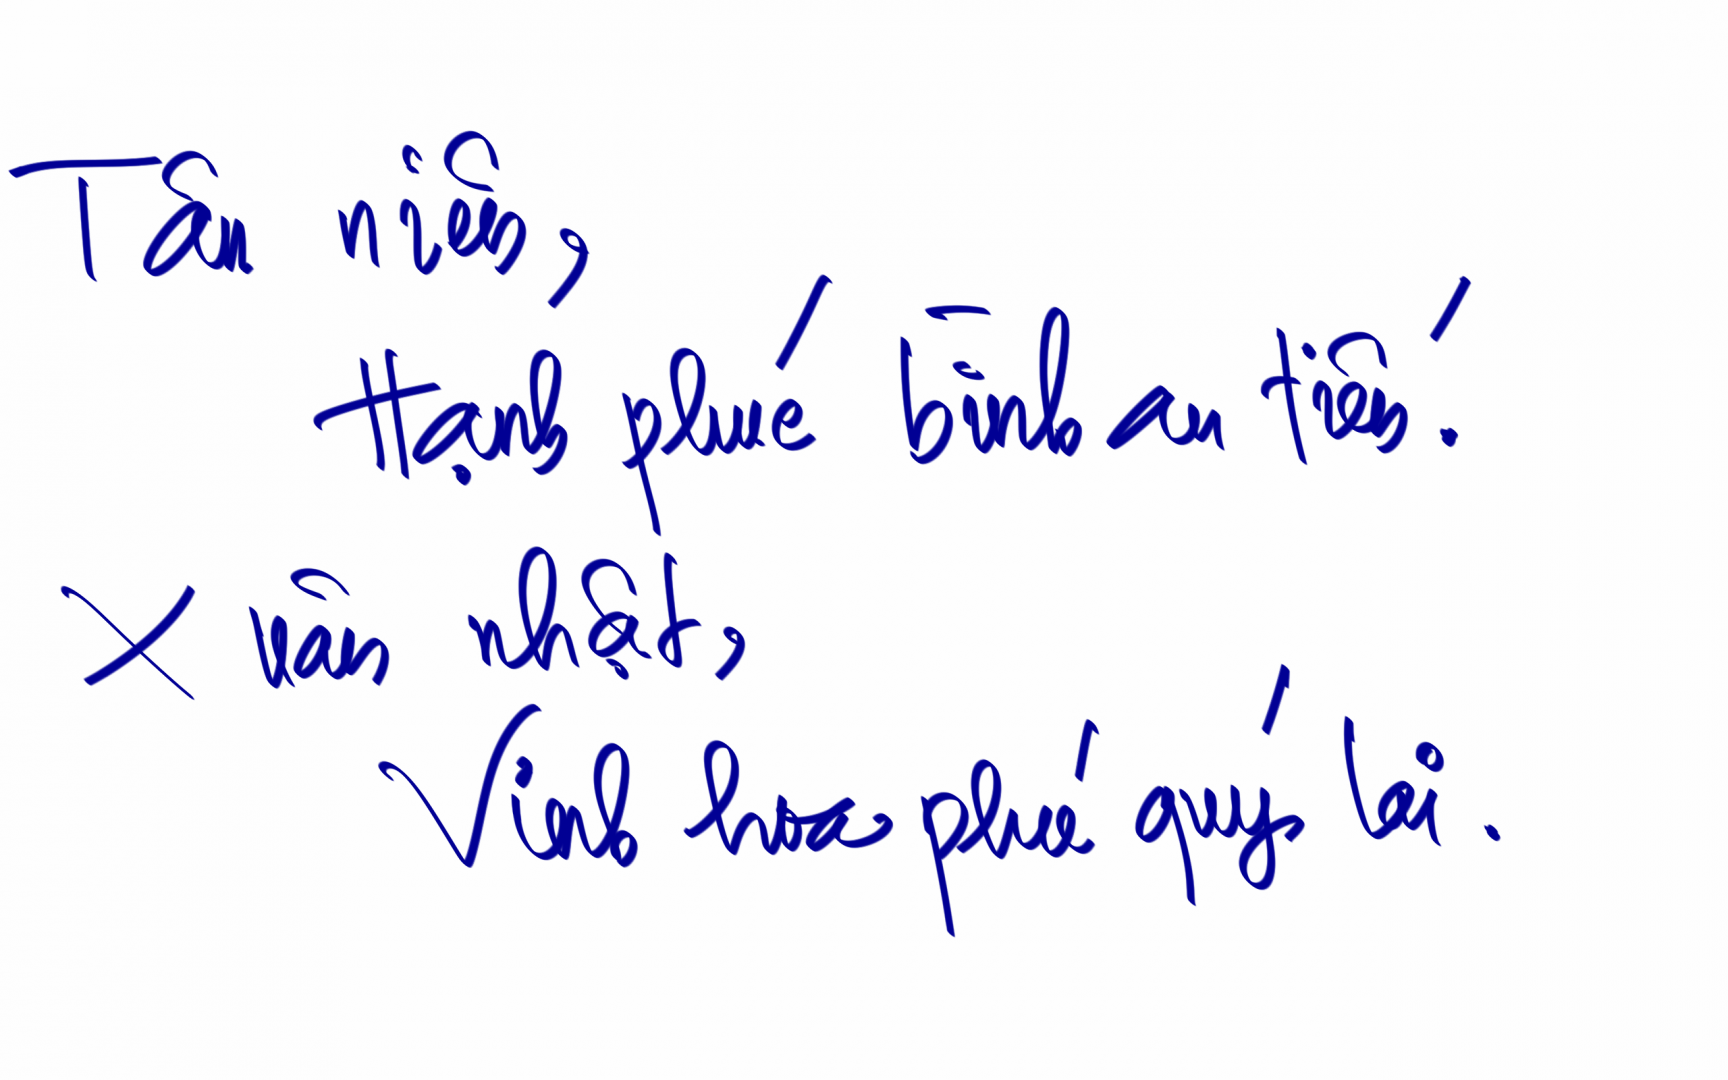 Tân niên,
Hạnh phúc bình an tiến.
Xuân nhật,
Vinh hoa phú quý lai.